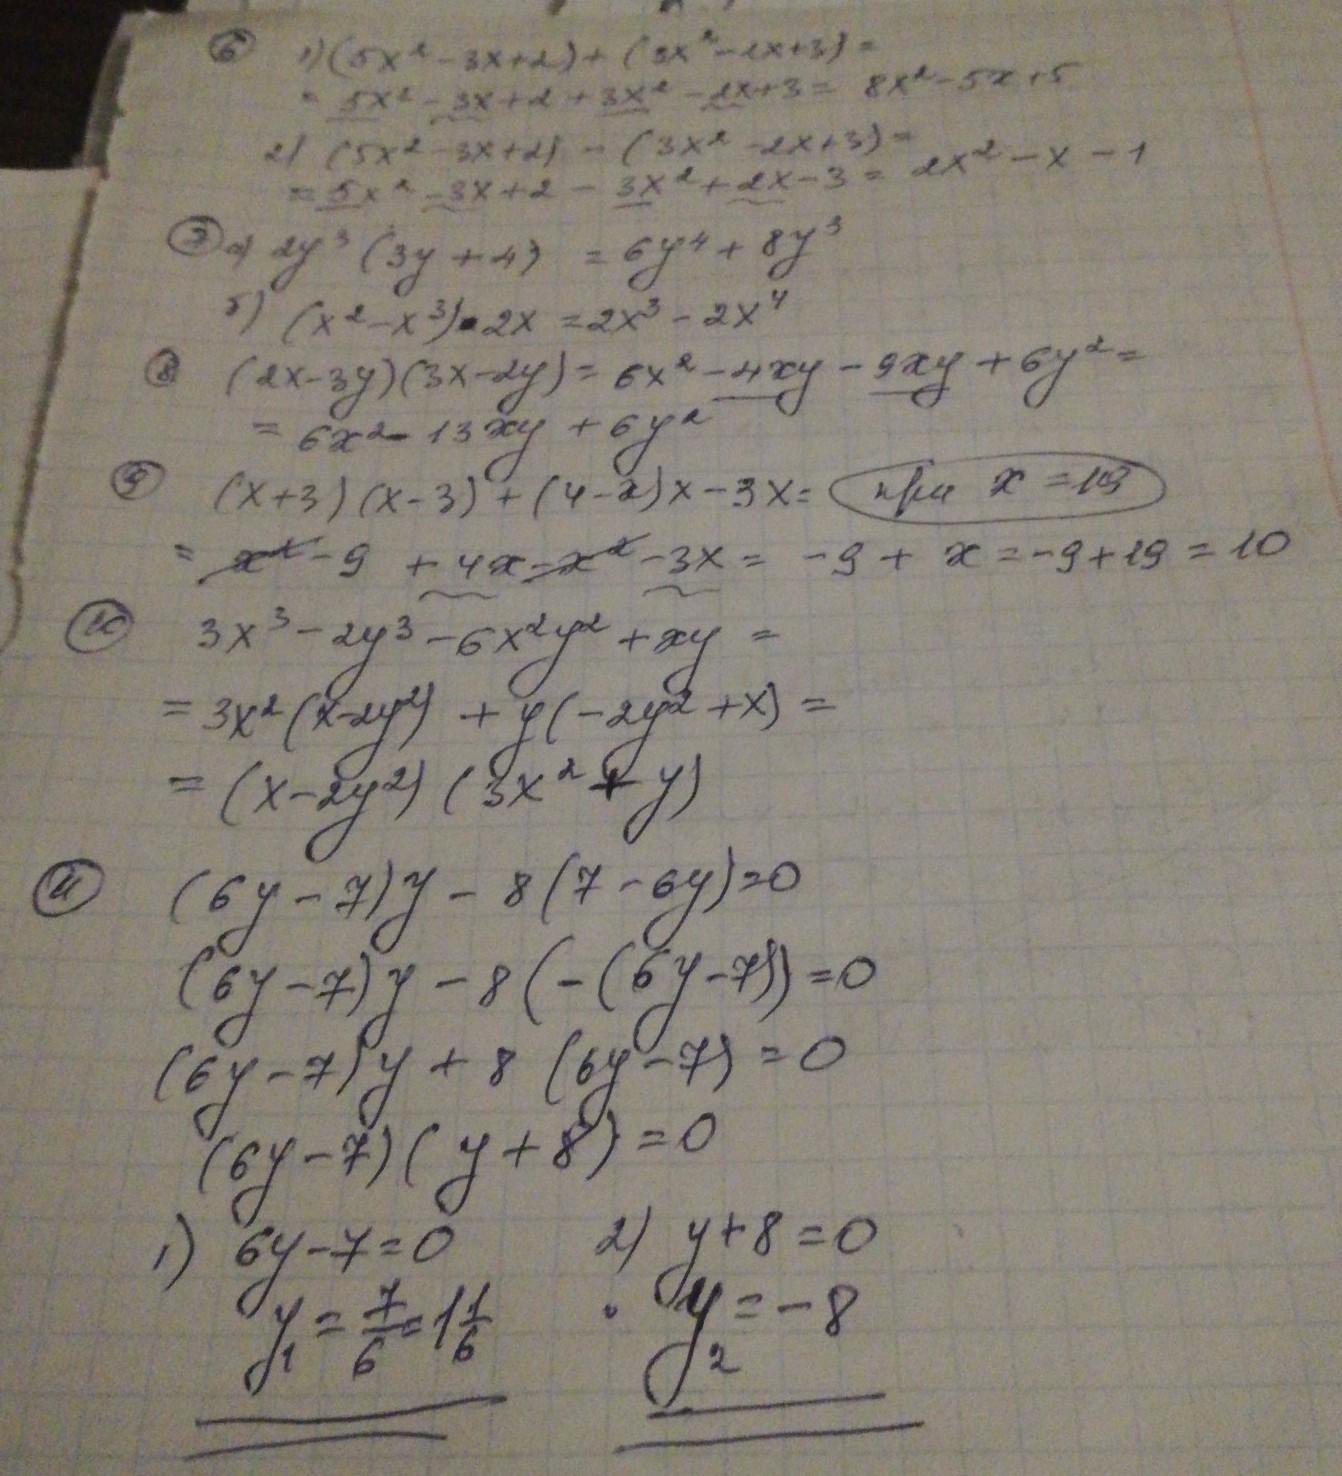 ⑥ 1) (5x² - 3x + 2) + (3x² - 2x + 3) =
= 5x² - 3x + 2 + 3x² - 2x + 3 = 8x² - 5x + 5
2) (5x² - 3x + 2) - (3x² - 2x + 3) =
= 5x² - 3x + 2 - 3x² + 2x - 3 = 2x² - x - 1
⑦ а) 2y³ (3y + 4) = 6y⁴ + 8y³
б) (x² - x³) · 2x = 2x³ - 2x⁴
⑧ (2x - 3y)(3x - 2y) = 6x² - 4xy - 9xy + 6y² =
= 6x² - 13xy + 6y²
⑨ (x + 3)(x - 3) + (4 - x)x - 3x = при x = 19
= x² - 9 + 4x - x² - 3x = -9 + x = -9 + 19 = 10
⑩ 3x³ - 2y³ - 6x²y² + xy =
= 3x² (x - 2y²) + y(-2y² + x) =
= (x - 2y²) (3x² + y)
⑪ (6y - 7)y - 8(7 - 6y) = 0
(6y - 7)y - 8(-(6y - 7)) = 0
(6y - 7)y + 8 (6y - 7) = 0
(6y - 7)(y + 8) = 0
1) 6y - 7 = 0 2) y + 8 = 0
y₁ = 7/6 = 1 1/6 y₂ = -8